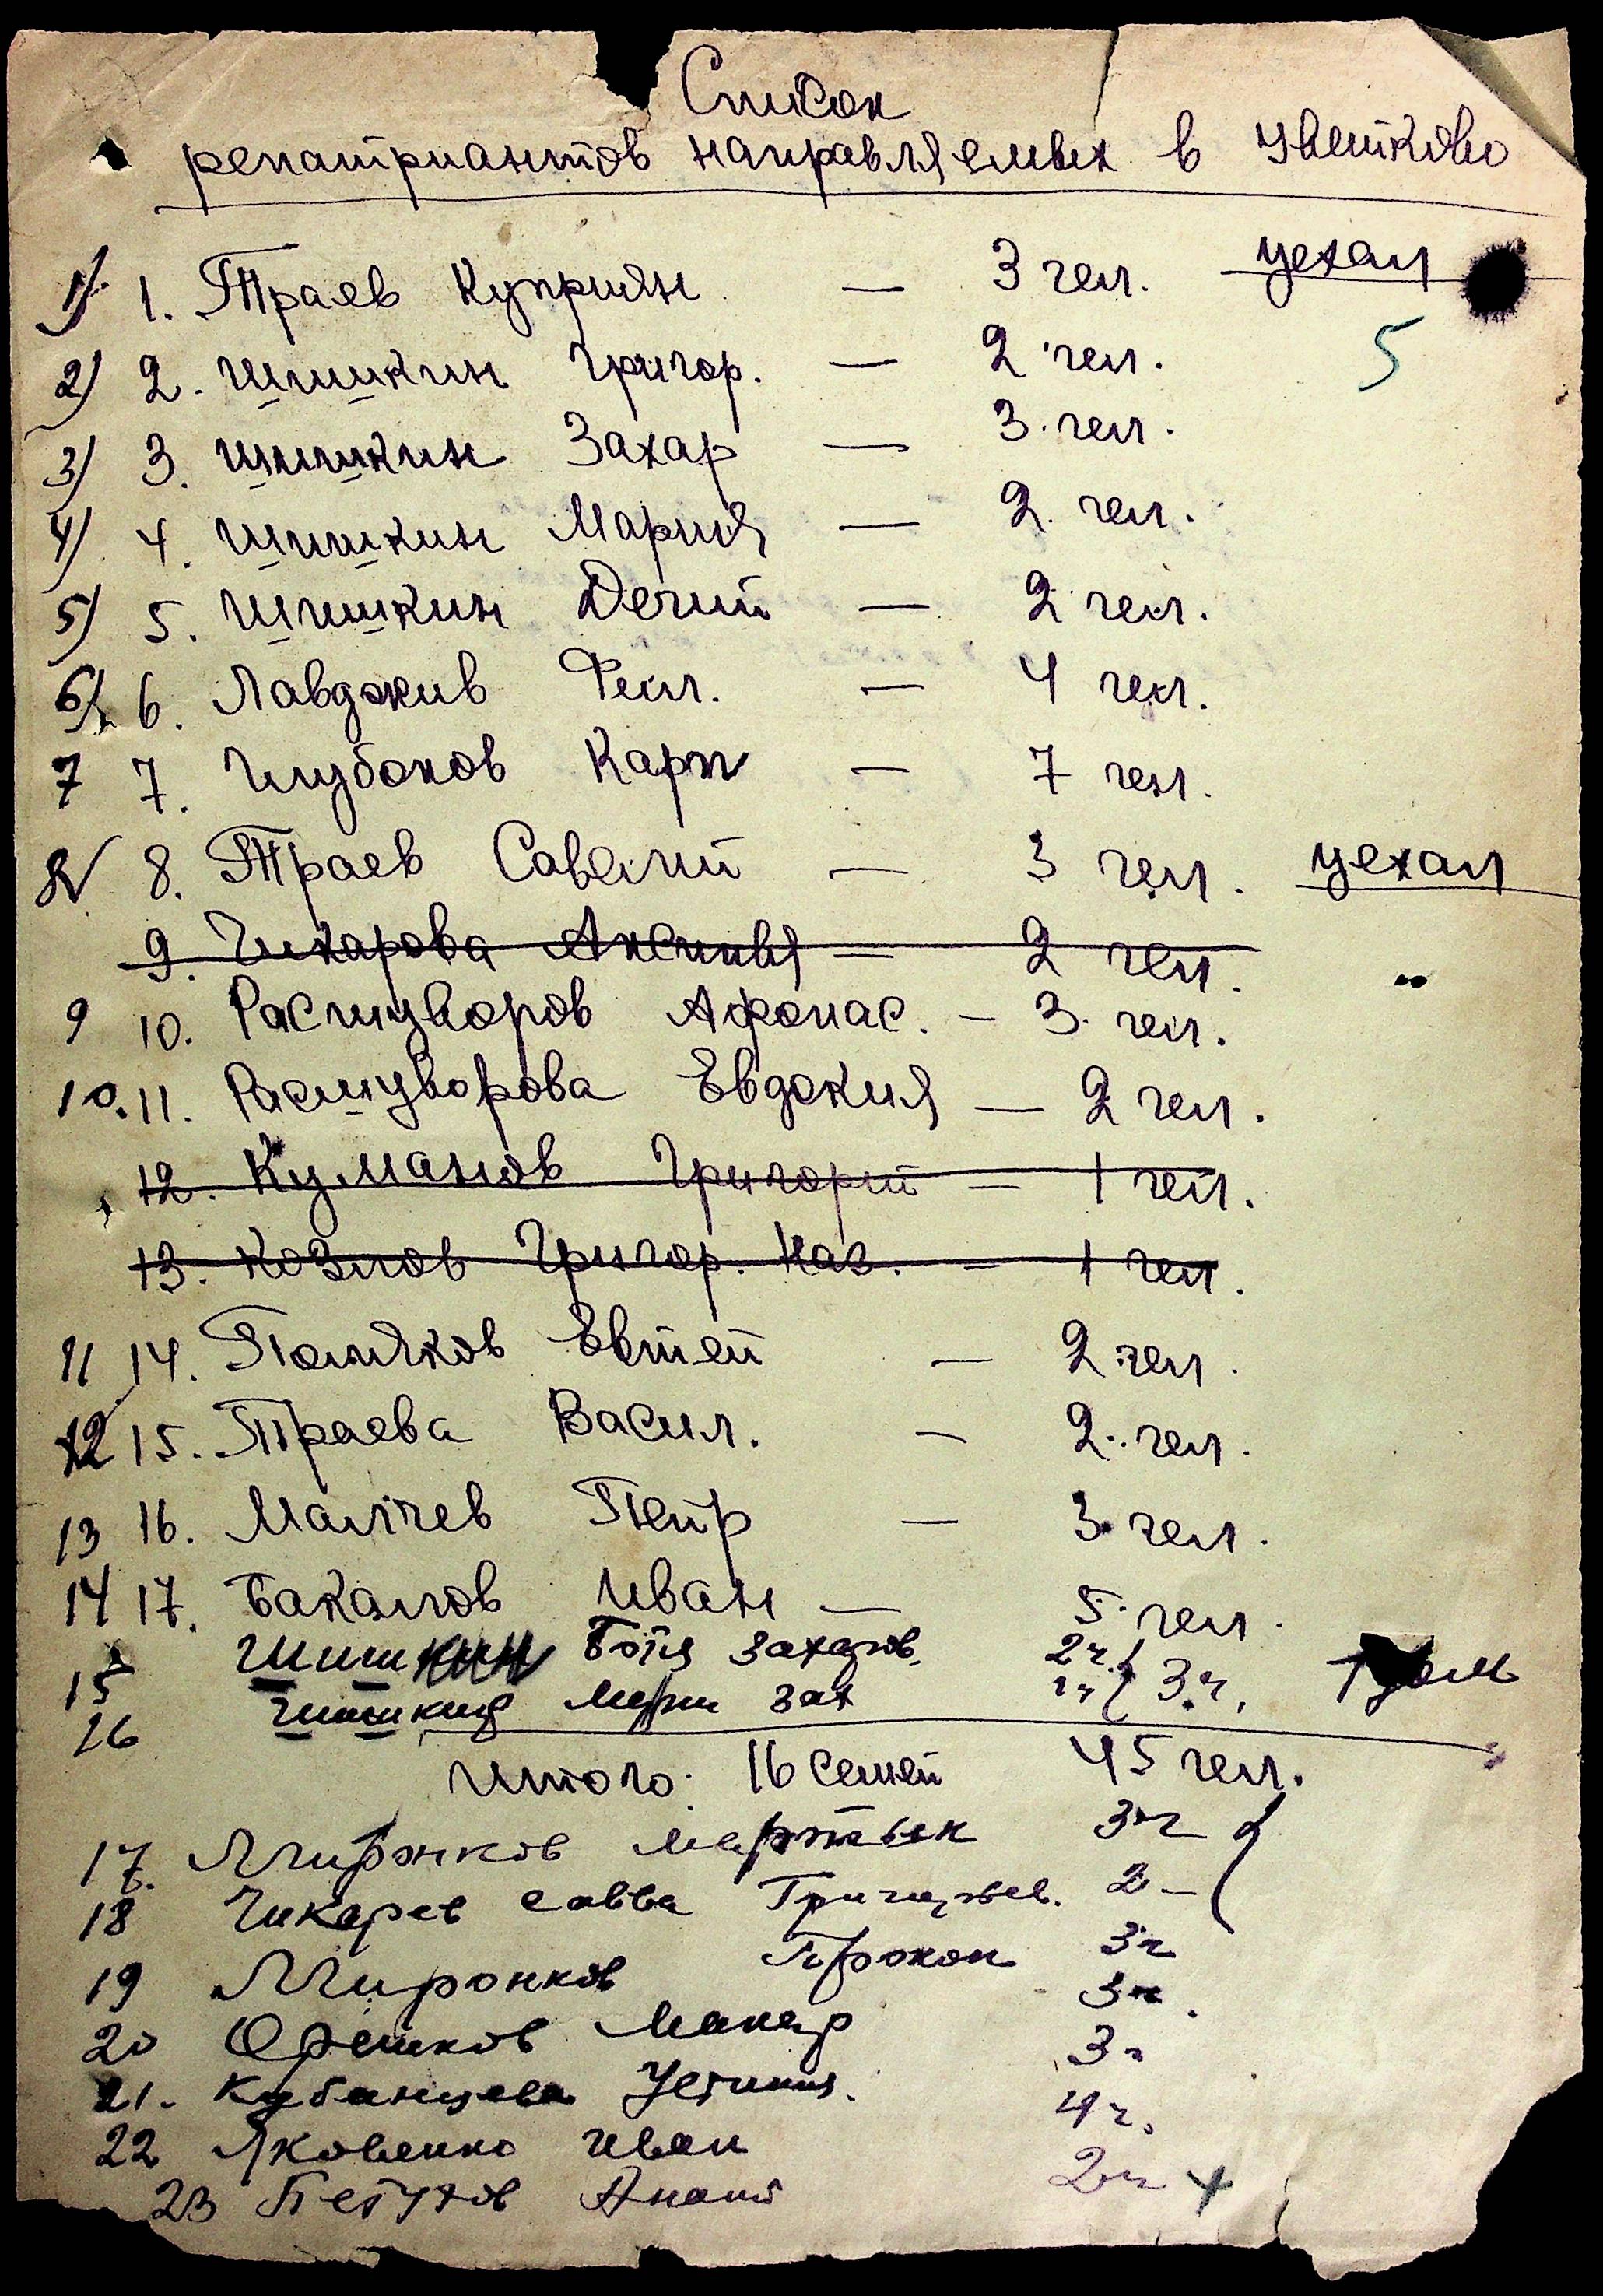 Список
репатриантов направляемых в Цветково
1) 1. Траев Куприян — 3 чел. уехал
2) 2. Шишкин Григор. — 2 чел. 5
3) 3. Шишкин Захар — 3 чел.
4) 4. Шишкин Мария — 2 чел.
5) 5. Шишкин — 2 чел.
6) 6. — 4 чел.
7 7. Глубоков Карп — 7 чел.
8 8. Траев Савелий — 3 чел. уехал
9. Чикарова Аксинья — 2 чел. "
9 10. Растуворов Афонас. — 3 чел.
10. 11. Растуворова Евдокия — 2 чел.
12. Куманов Григорий — 1 чел.
13. Козлов Григор. Каз. — 1 чел.
11 14. Поляков Евтей — 2 чел.
12 15. Траева Васил. — 2 чел.
13 16. Петр — 3 чел.
14 17. Бакалов Иван — 5 чел.
15 Шишкин Захаров. 2ч.
16 Шишкин Мария Зах 1ч 3ч.
Итого: 16 семей 45 чел.
17. Миронков Мартьян 3ч
18 Чикарев Савва Григорьев. 2 —
19 Миронков Прокоп 3ч
20 Орешков Макар 3ч.
21. Кубанцева Устиния. 3ч
22 Яковенко Иван 4ч.
23 Петухов Анани 2ч +